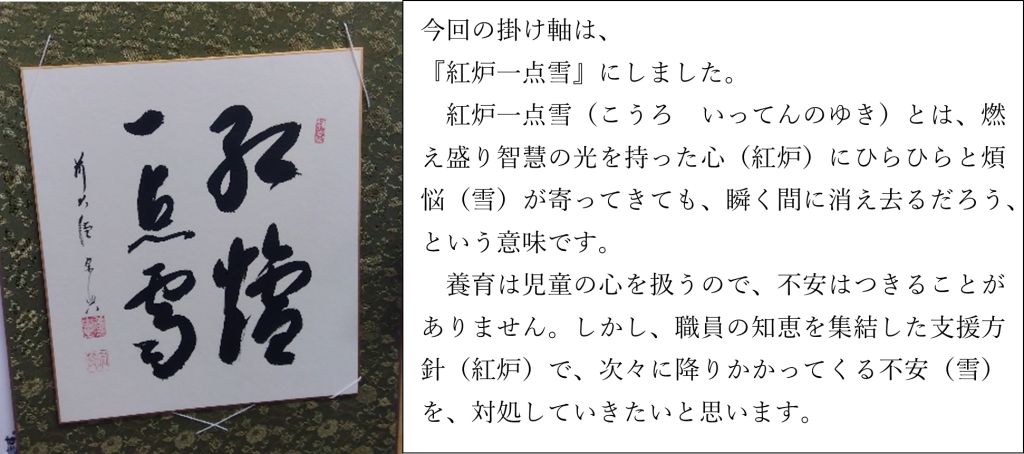 紅爐
一点雪
今回の掛け軸は、
『紅炉一点雪』にしました。
　紅炉一点雪（こうろ　いってんのゆき）とは、燃
え盛り智慧の光を持った心（紅炉）にひらひらと煩
悩（雪）が寄ってきても、瞬く間に消え去るだろう、
という意味です。
　養育は児童の心を扱うので、不安はつきることが
ありません。しかし、職員の知恵を集結した支援方
針（紅炉）で、次々に降りかかってくる不安（雪）
を、対処していきたいと思います。